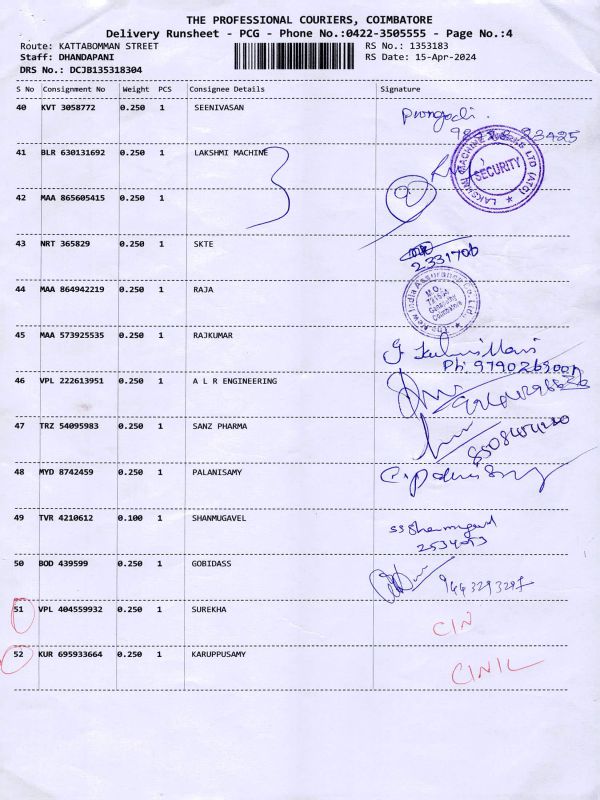 THE PROFESSIONAL COURIERS, COIMBATORE
Delivery Runsheet - PCG - Phone No.:0422-3505555 - Page No.:4
Route: KATTABOMMAN STREET RS No.: 1353183
Staff: DHANDAPANI RS Date: 15-Apr-2024
DRS No.: DCJB135318304
S No Consignment No Weight PCS Consignee Details Signature
40 KVT 3058772 0.250 1 SEENIVASAN
41 BLR 630131692 0.250 1 LAKSHMI MACHINE
SECURITY
42 MAA 865605415 0.250 1
43 NRT 365829 0.250 1 SKTE
2331706
44 MAA 864942219 0.250 1 RAJA
The New India Assurance Co. Ltd.
Coimbatore
45 MAA 573925535 0.250 1 RAJKUMAR
46 VPL 222613951 0.250 1 A L R ENGINEERING
47 TRZ 54095983 0.250 1 SANZ PHARMA
48 MYD 8742459 0.250 1 PALANISAMY
49 TVR 4210612 0.100 1 SHANMUGAVEL
50 BOD 439599 0.250 1 GOBIDASS
51 VPL 404559932 0.250 1 SUREKHA
CIN
52 KUR 695933664 0.250 1 KARUPPUSAMY